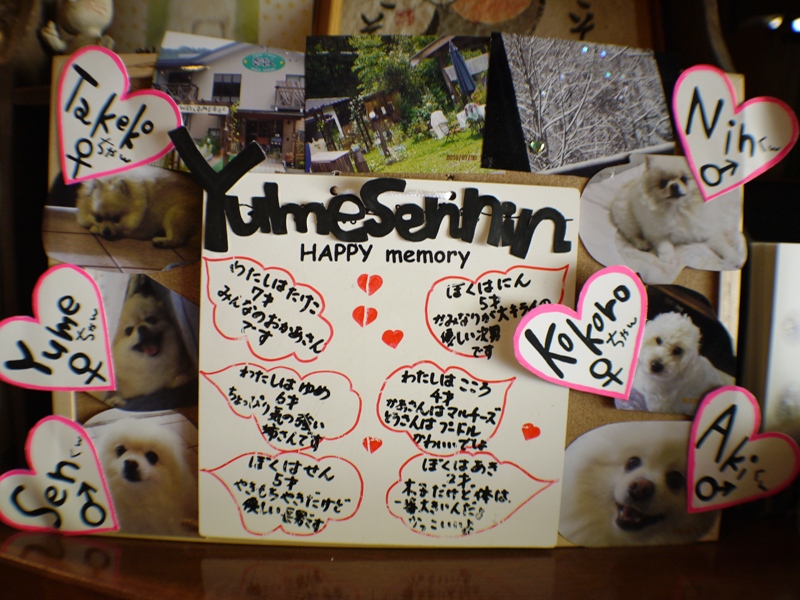 Takeko
♀ちゃん
Ninくん
♂
YumeSennin
HAPPY memory
わたしはたけこ
7才
みんなのおかあさん
です
ぼくはにん
5才
かみなりが大キライの
優しい次男
です
Yumeちゃん
♀
Kokoroちゃん
♀
わたしはゆめ
6才
ちょっぴり気の強い
姉さんです
わたしはこころ
4才
かあさんはマルチーズ
とうさんはプードル
かわいいでしょ
Sen
♂
Akiくん
♂
ぼくはせん
5才
やきもちやきだけど
優しい長男です
ぼくはあき
2才
末っ子だけど体は
一番大きいんだ♪
かっこいいよ